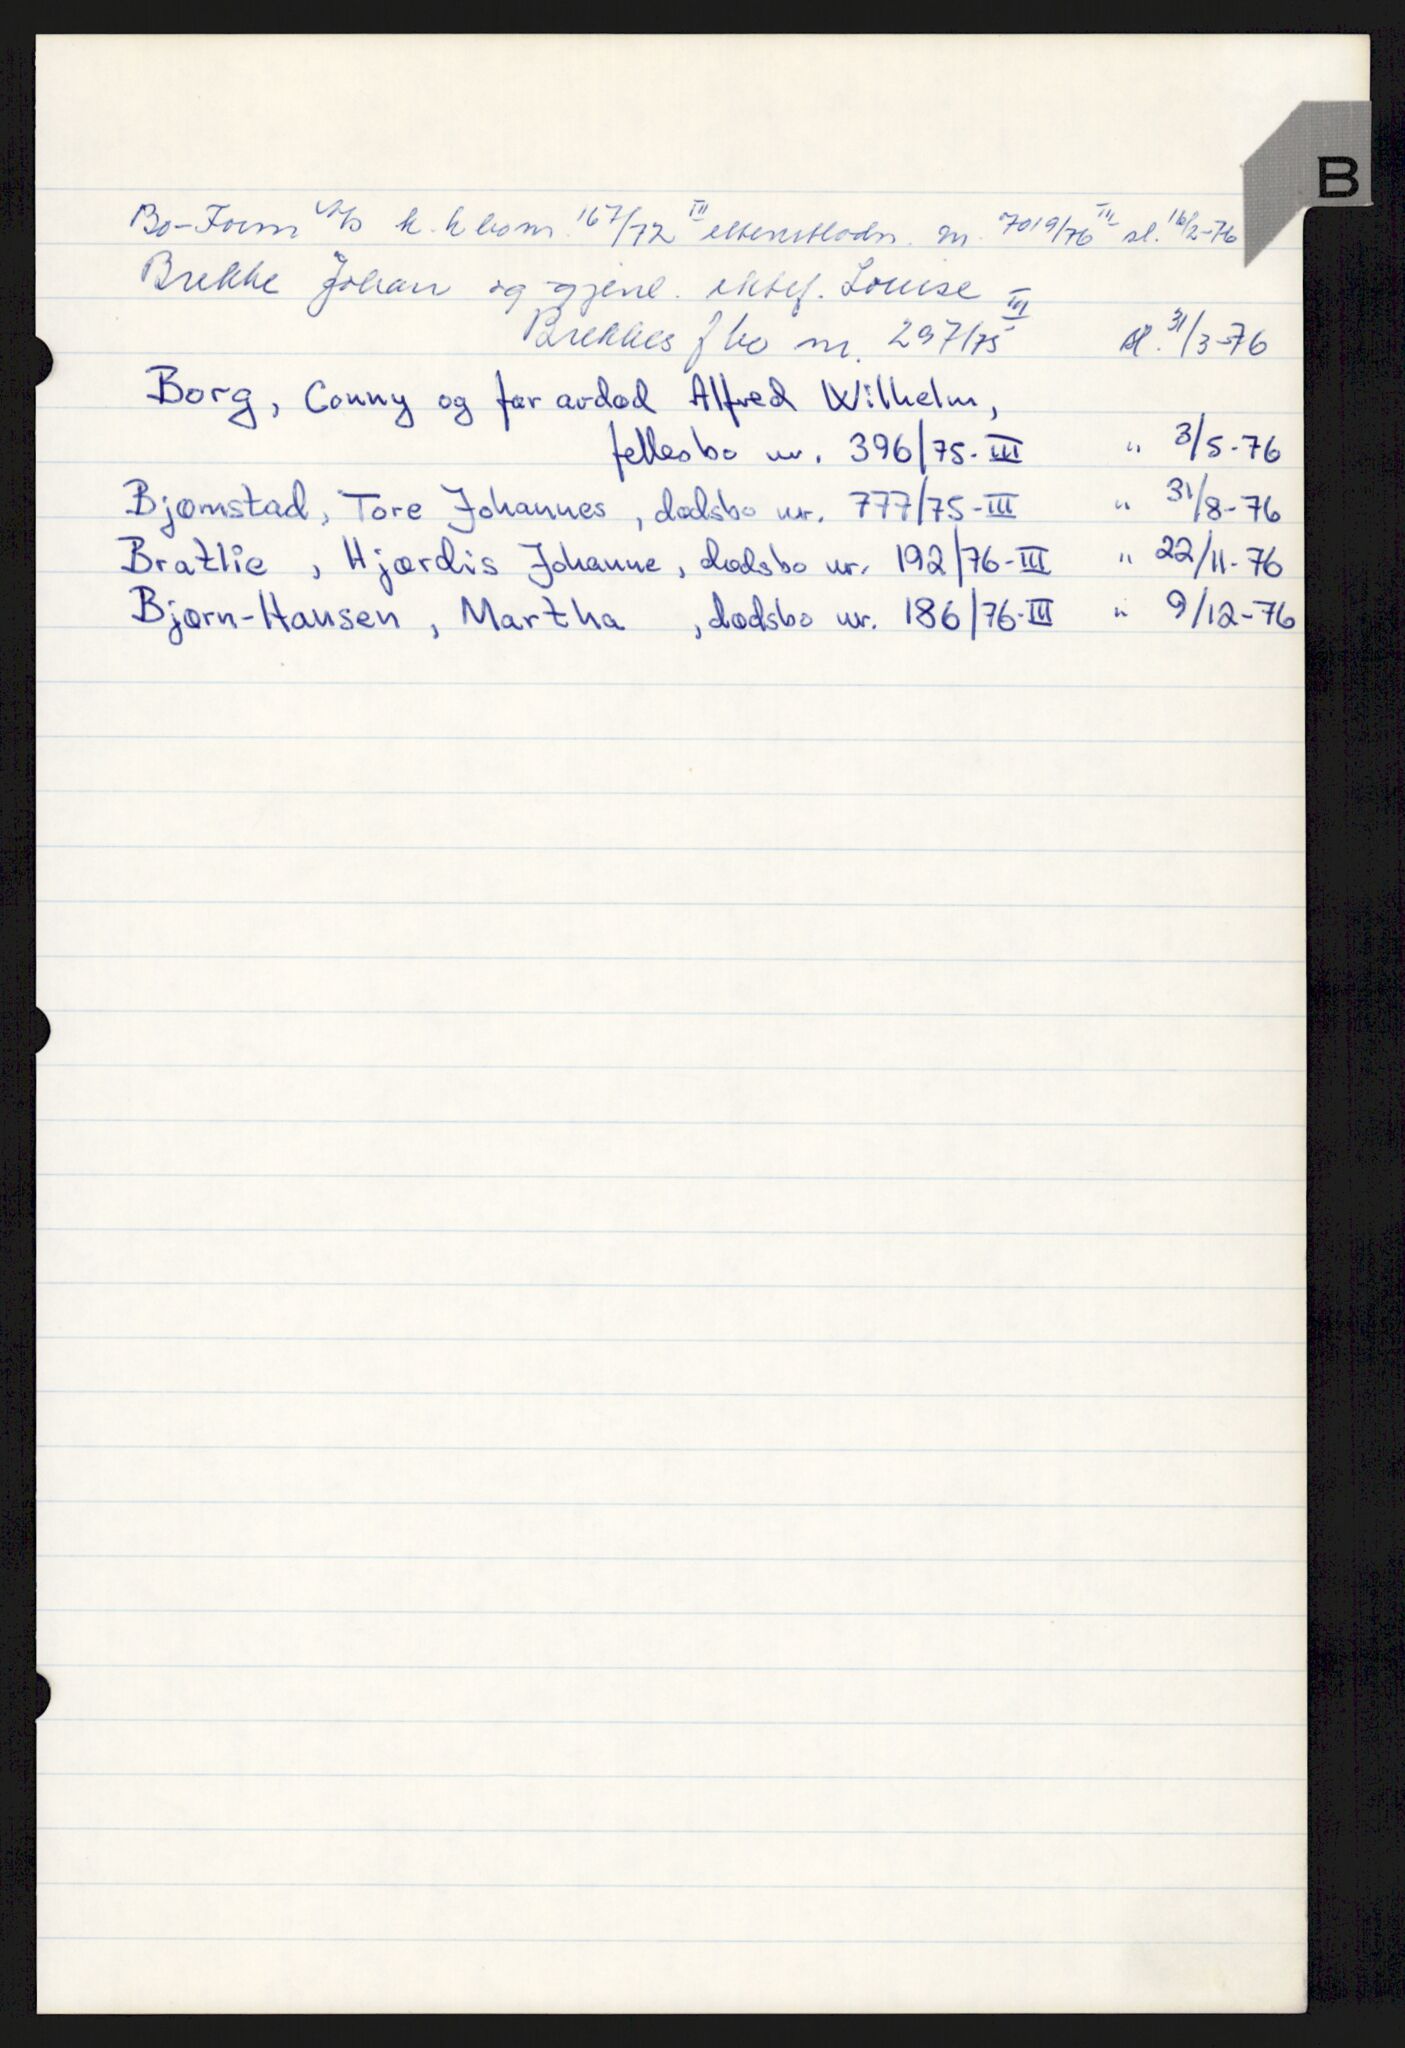 B
Bo-Form A/S k.k. kom. 167/72 III nr. 7019/76 III sl. 16/2-76
Brekke Johan og gjenl. ektef. Louise
Brekkes f bo nr. 297/75 III sl. 31/3-76
Borg, Conny og før avdød Alfred Wilhelm,
fellesbo nr. 396/75-III " 3/5-76
Bjørnstad, Tore Johannes, dødsbo nr. 777/75-III " 31/8-76
Bratlie, Hjørdis Johanne, dødsbo nr. 192/76-III " 22/11-76
Bjørn-Hansen, Martha, dødsbo nr. 186/76-III " 9/12-76